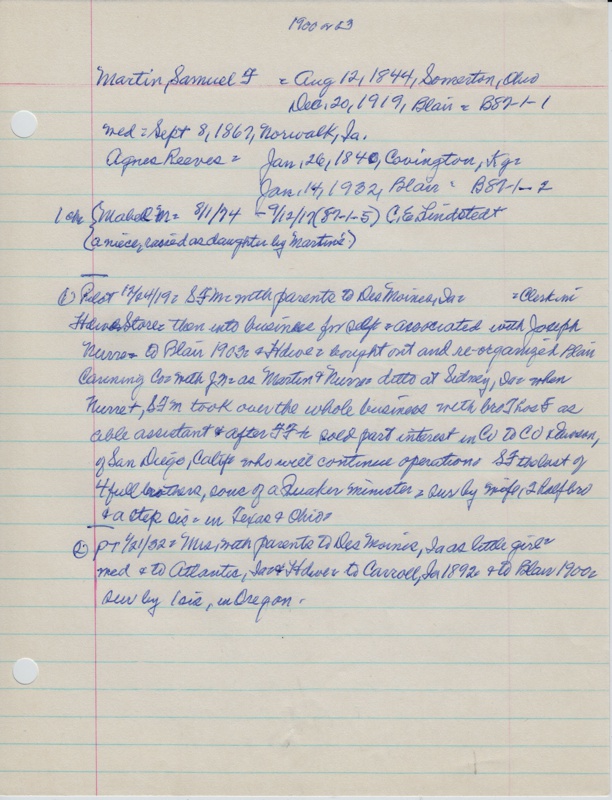 1900 or 23
Martin, Samuel F = Aug 12, 1844, Somerton, Ohio
Dec, 20, 1919, Blair = B87-1-1
med = Sept 8, 1867, Norwalk, Ia.
Agnes Reeves = Jan, 26, 1840, Covington, Ky =
Jan, 14, 1932, Blair = B87-1-2
1 ch {Mabel M = 8/1/74 - 9/12/17 (87-1-5) C.E. Lindstedt
(a niece, rasied as daughter by Martin's)
(1) Pilot 12/24/19 = S F M = with parents to Des Moines, Ia = = Clerk in
Hdwe Store = then into business for self & associated with Joseph
Nurre = to Blair 1903 = & Hdwe = bought out and re-organized Blair
Canning Co = with J N = as Martin & Nurre = ditto at Sidney, Ia = when
Nurre +, S F M took over the whole business with bro Thos F as
able assistant & after TF + sold part interest in Co to CO
of San Diego, Calif = who will continue operations S F the last of
4 full brothers, sons of a Quaker minister = sur by wife, 2 half bro
& a step sis = in Texas & Ohio =
(2) PT 1/21/32 = Mrs, with parents to Des Moines, Ia as little girl =
med & to Atlantic, Ia = & Hdwe = to Carroll, Ia 1892 = & to Blair 1900 =
sur by 1 sis, in Oregon.